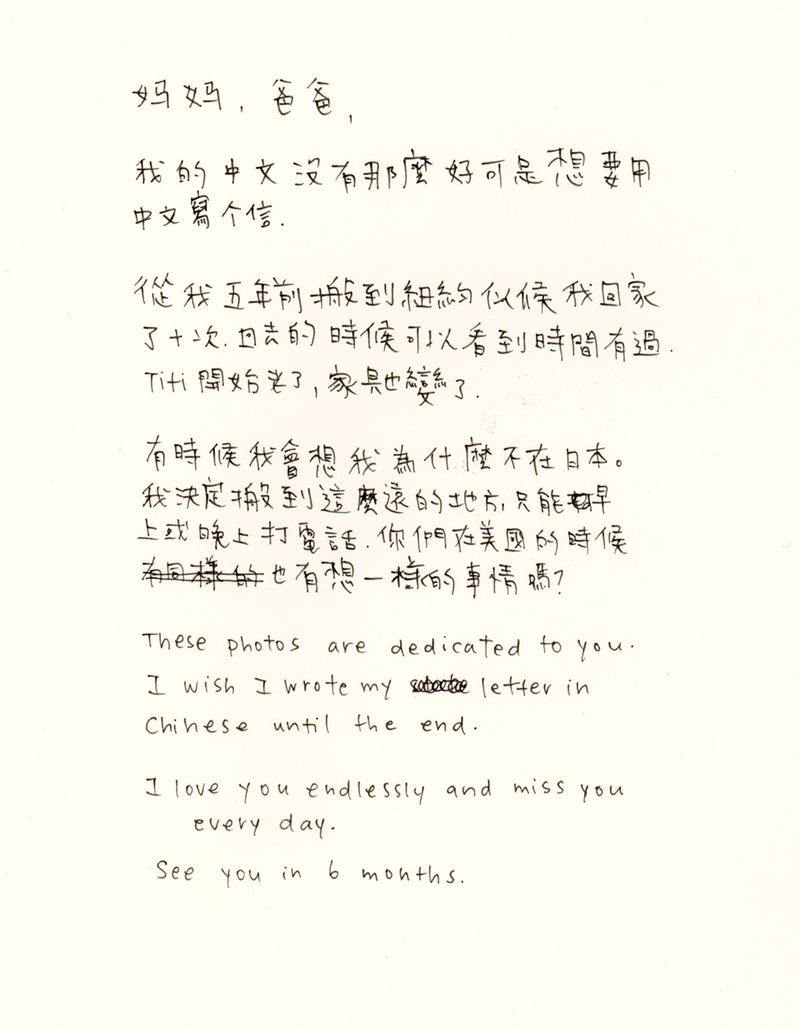 妈妈，爸爸，
我的中文沒有那麼好可是想要用
中文寫个信.
從我五年前搬到紐約似候我回家
了十次.回去的時候可以看到時間有過.
Titi開始老了，家具也變了.
有時候我會想我為什麼不在日本。
我決定搬到這麼遠的地方,只能早
上或晚上打電話.你們在美國的時候
有同樣的也有想一樣的事情嗎?
These photos are dedicated to you.
I wish I wrote my letter in
Chinese until the end.
I love you endlessly and miss you
every day.
See you in 6 months.